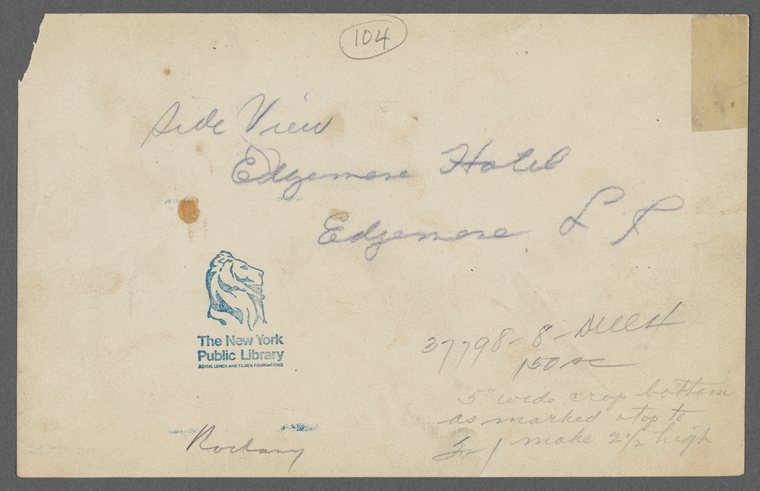 104
Side View
Edgemere Hotel
Edgemere L I
The New York
Public Library
ASTOR, LENOX AND TILDEN FOUNDATIONS
37798-8-
150 sc
5" wide crop bottom
as marked & top to
make 2 1/2 high